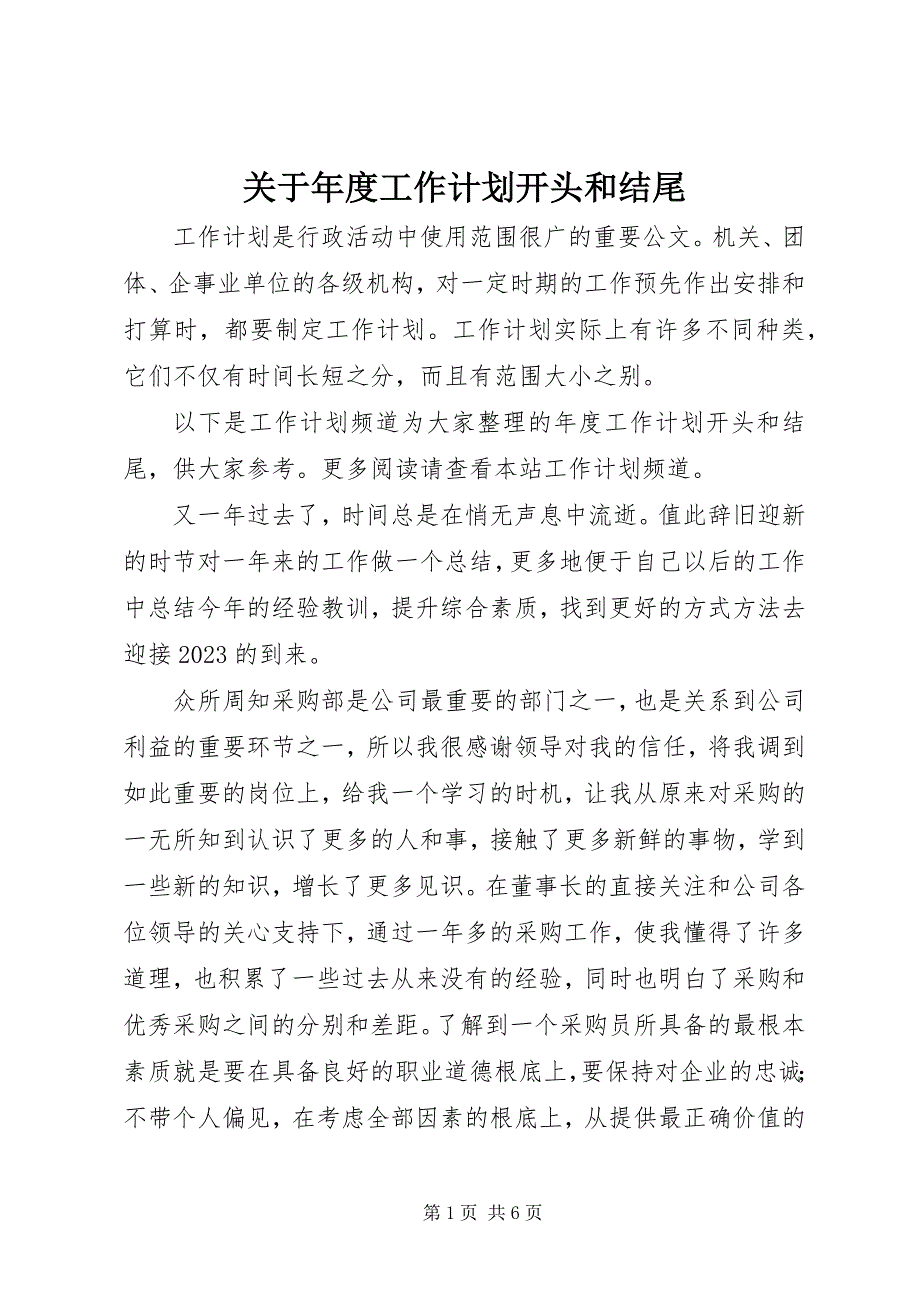 关于年度工作计划开头和结尾
工作计划是行政活动中使用范围很广的重要公文。机关、团
体、企事业单位的各级机构，对一定时期的工作预先作出安排和
打算时，都要制定工作计划。工作计划实际上有许多不同种类，
它们不仅有时间长短之分，而且有范围大小之别。
以下是工作计划频道为大家整理的年度工作计划开头和结
尾，供大家参考。更多阅读请查看本站工作计划频道。
又一年过去了，时间总是在悄无声息中流逝。值此辞旧迎新
的时节对一年来的工作做一个总结，更多地便于自己以后的工作
中总结今年的经验教训，提升综合素质，找到更好的方式方法去
迎接 2023 的到来。
众所周知采购部是公司最重要的部门之一，也是关系到公司
利益的重要环节之一，所以我很感谢领导对我的信任，将我调到
如此重要的岗位上，给我一个学习的时机，让我从原来对采购的
一无所知到认识了更多的人和事，接触了更多新鲜的事物，学到
一些新的知识，增长了更多见识。在董事长的直接关注和公司各
位领导的关心支持下，通过一年多的采购工作，使我懂得了许多
道理，也积累了一些过去从来没有的经验，同时也明白了采购和
优秀采购之间的分别和差距。了解到一个采购员所具备的最根本
素质就是要在具备良好的职业道德根底上，要保持对企业的忠诚；
不带个人偏见，在考虑全部因素的根底上，从提供最正确价值的
第 1 页 共 6 页